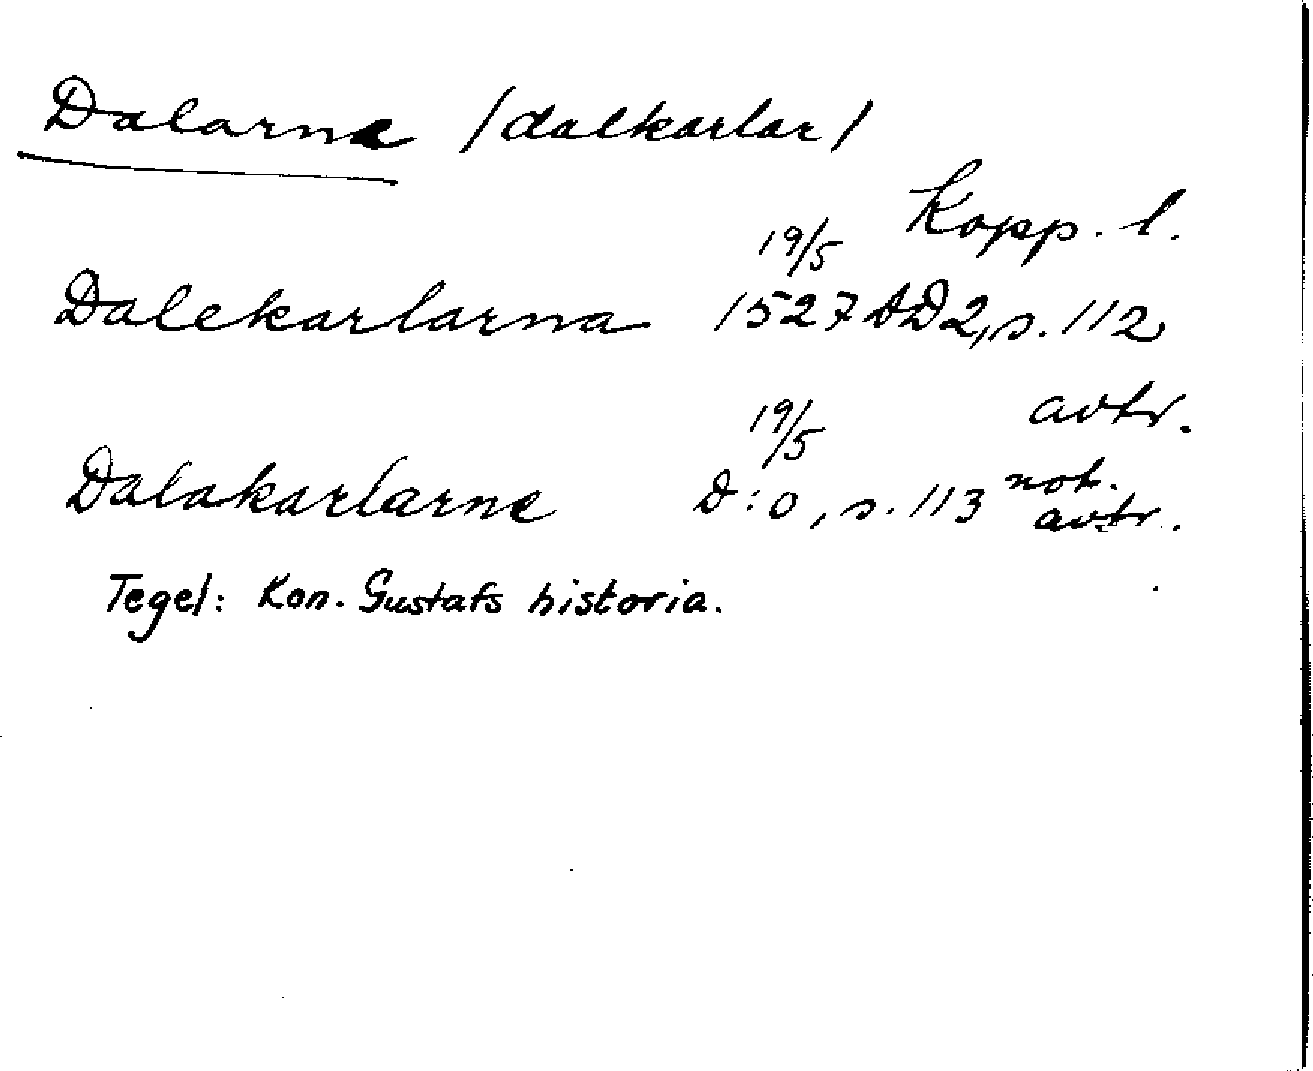 Dalarne /dalkarlar/
Kopp. l.
Dalekarlarna 19/5 1527 AD2, s. 112
avtr.
Dalakarlarne 19/5 D:o, s. 113 not. avtr.
Tegel: Kon. Gustafs historia.